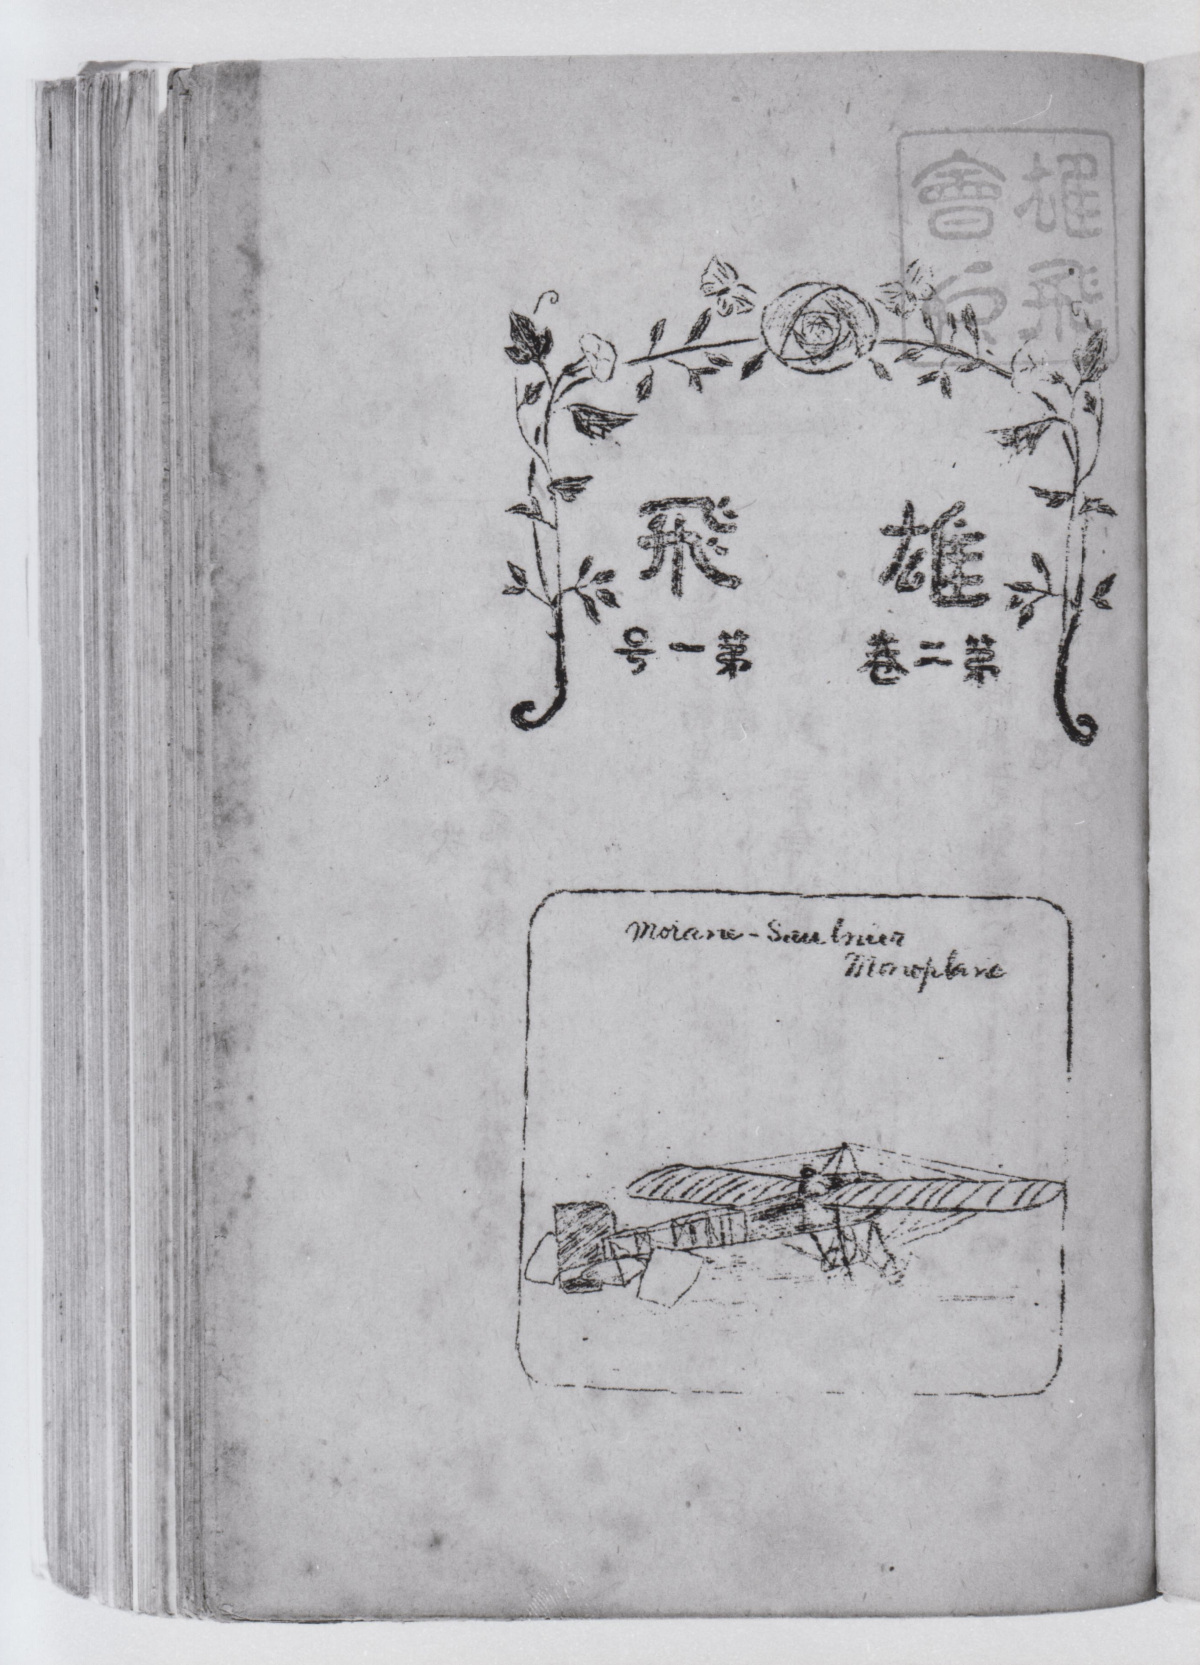 雄飛
會印
雄飛
第二卷 第一号
Morane-Saulnier
Monoplane